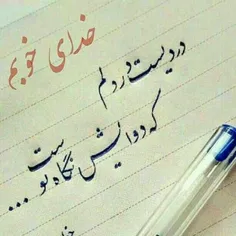 خدای خوبم
دردیست در دلم
که دوایش نگاه توست...